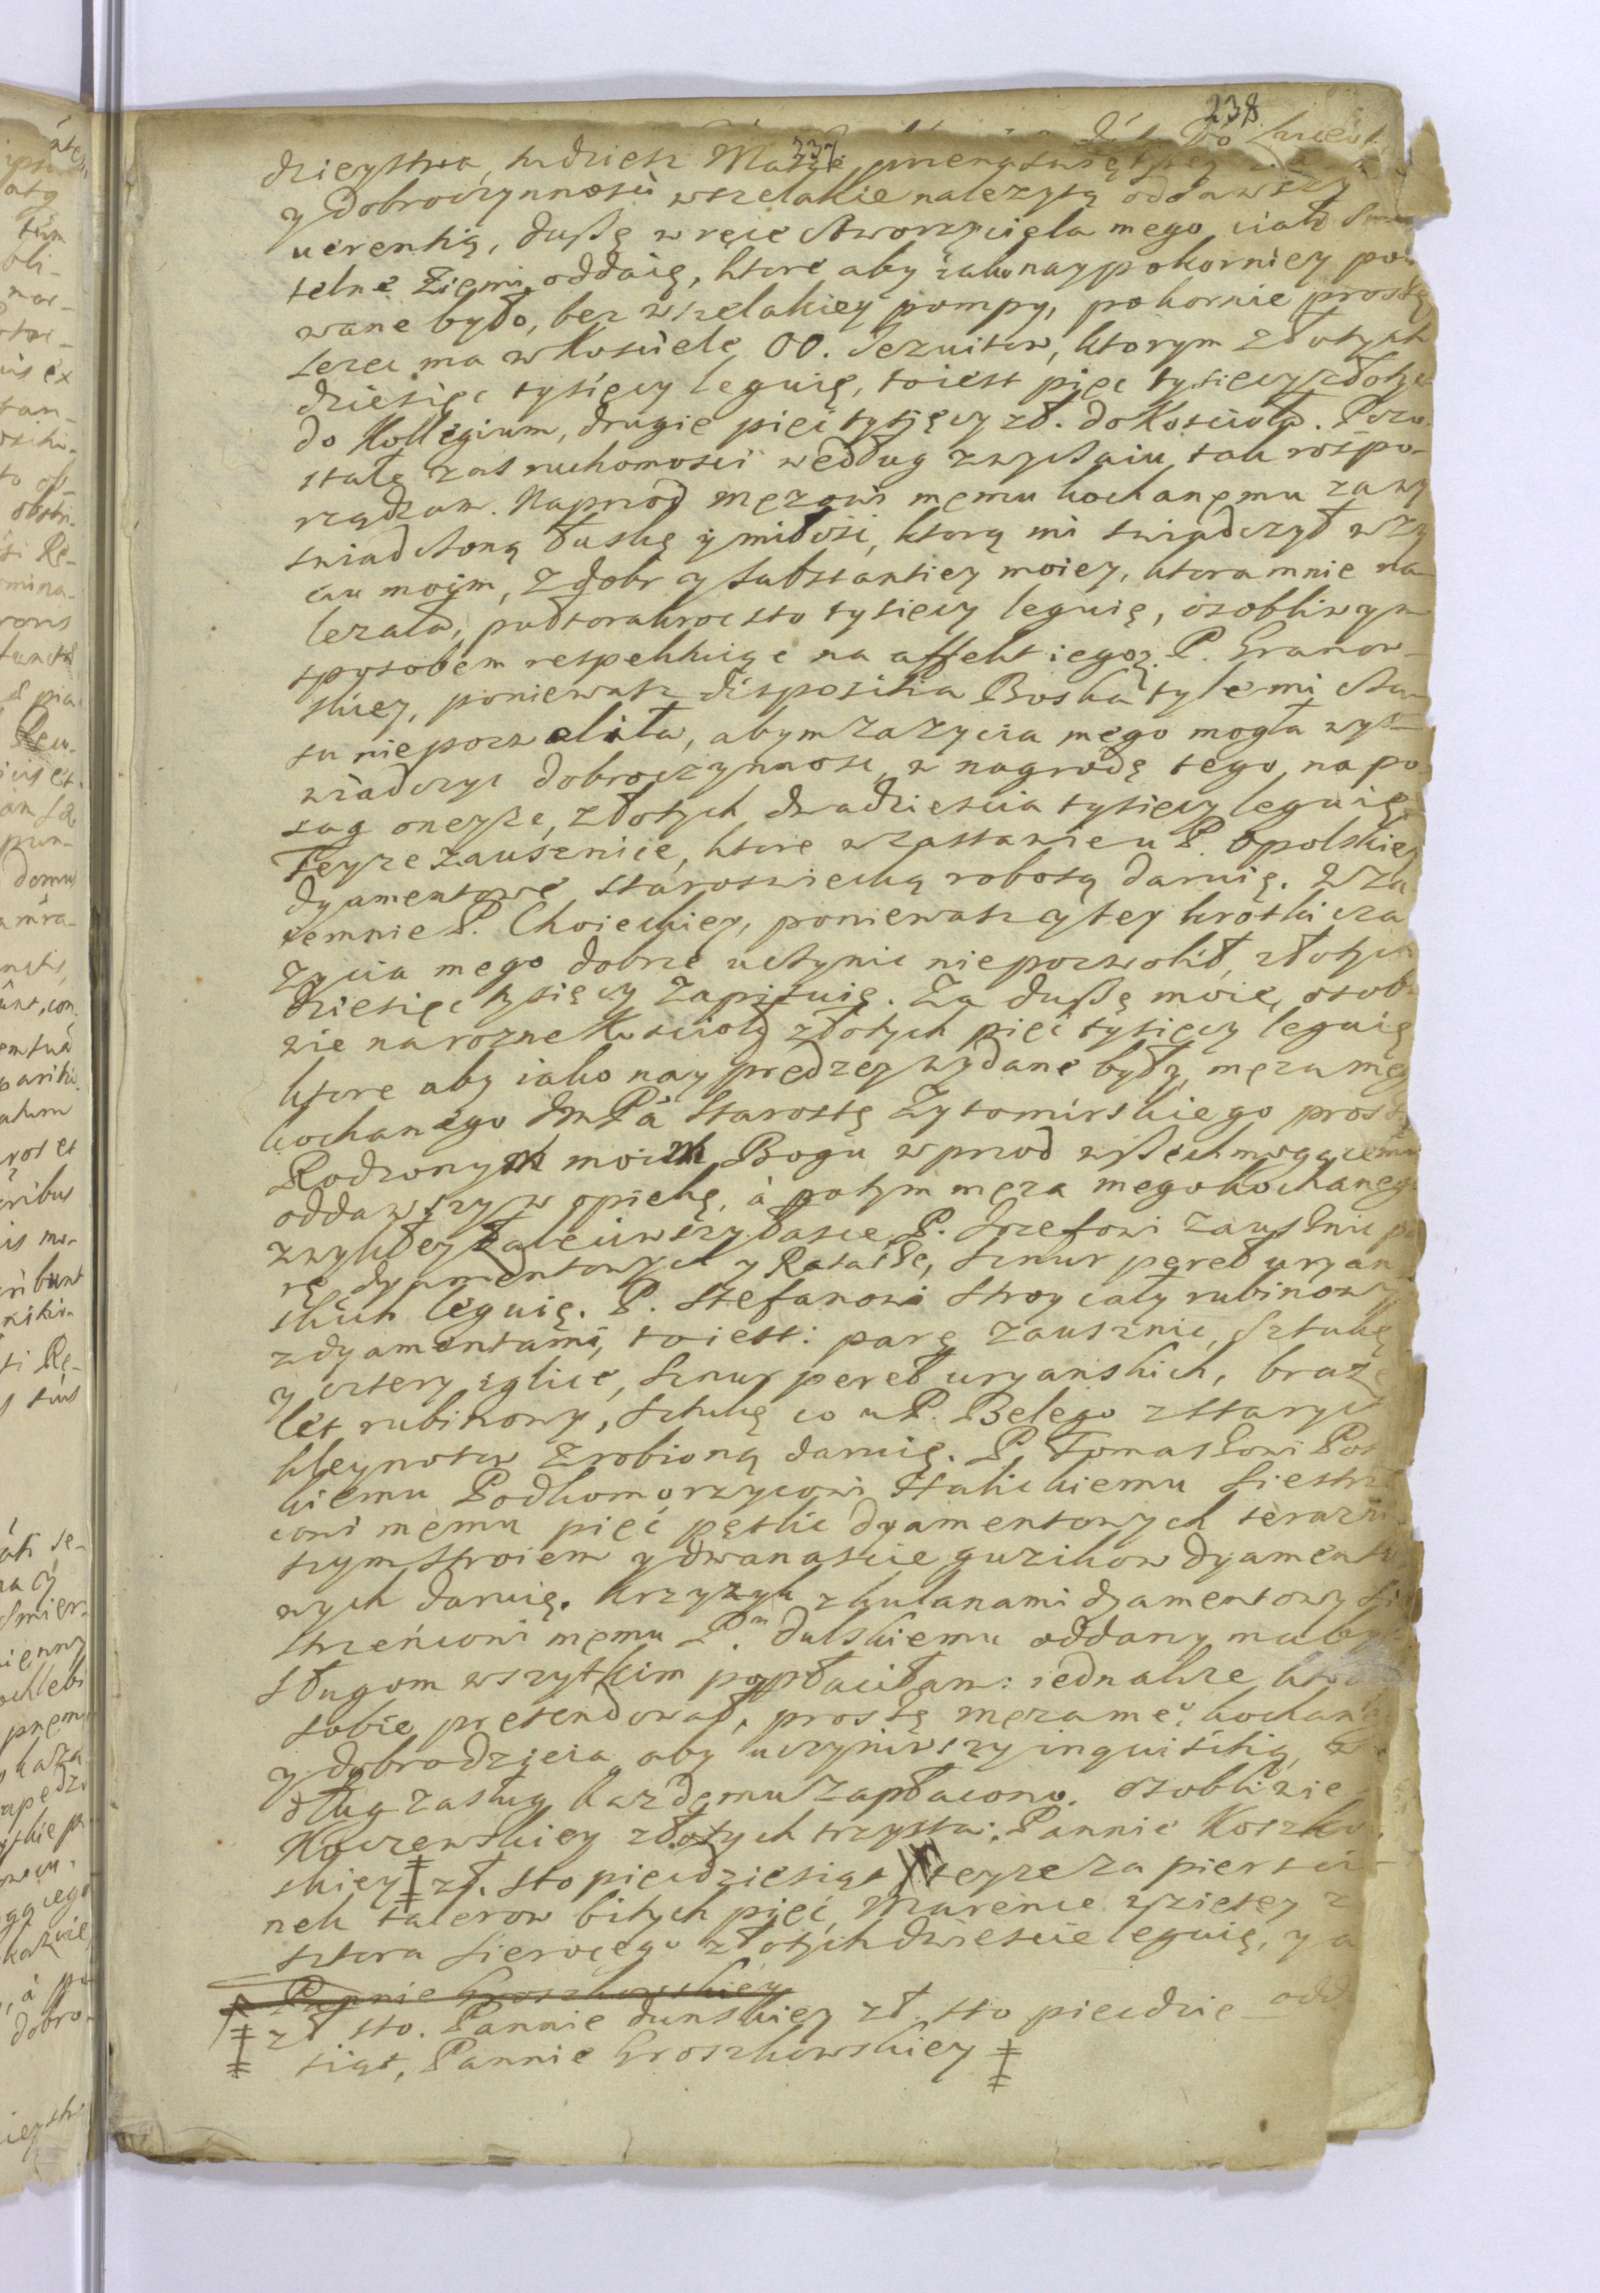 238
237
dzieystwa, tudziesz
y dobroczynnosci wszelakie nalezytą oddawszy
uerentią, dußę w ręce Stworzyciela mego ciało
telne Ziemi oddaię, ktore aby iako naypokorniey po
wane było, bez wszelakiey pompy, pokornie proszę
lezec ma w Kosciele OO. Jezuitow, ktorym złotych
dziesięc tysięcy leguię, toiest pięc tysięcy złotych
do Kollegium, drugie pięc tysięcy zł. do Kościoła. Pozo-
stałe zas ruchomosci według zwyczaiu tak rospo-
rządzam. Naprzod męzowi memu kochanęmu zawy
swiadczoną łaskę y miłośc, ktorą mi swiadczył w zy
ciu moim, z dobr y substantiey moiey, ktora mnie na
lezała, pułtorakroc sto tysięcy leguię, osobliwym
sposobem respektuiąc na affekt iegoz. P. Granow-
skiey, poniewasz dispositia Boska tyle mi cza-
su niepozwoliła, abym za zycia mego mogła wys-
wiadczyc dobroczynnosc, w nagrodę tego, na po
sag oneyze, złotych dwadziescia tysięcy leguię
Teyze zausznice, ktore w zastawie u P. Opolskiey
dyamentowe staroswiecką robotą daruię. Wza
iemnie P. Choieckiey, poniewasz y tey krotki cza
zycia mego dobrze uczynic niepozwolił, złotych
dziesięc tysięcy zapisuię. Za dußę moię, osob-
wie na rozne Koscioły złotych pięc tysięcy leguię
ktore aby iako nayprędzey wydane były, męza meg
kochanego JmPa Starostę Zytomirskiego proszę
Rodzonych moich Bogu w przod wßechmogącemu
oddawszy w opiekę, à potym męza mego kochaneg
zwykłey zaleciwszy łasce P. Jozefowi zausznic pa
rę dyamentowych y Rataßę, sznur pereł uryan-
skich leguię. P. Stefanowi stroy cały rubinowy
z dyamentami, toiest: parę zausznic, sztukę
y cztery iglice, sznur pereł uryanskich, braze
let rubinowy, sztukę co u P. Belego z starych
kleynotow zrobioną daruię. P. Tomaszowi Pot
kiemu Podkomorzycowi Halickiemu Siestrz
cowi męmu pięć pętlic dyamentowych terazni
szym stroiem y dwanascie guzikow dyamento
wych daruię. Krzyzyk z kulanami dyamentowy Si
strzeńcowi męmu P.<sup>m</sup> Dulskiemu oddany ma być
Sługom wszytkim popłaciłam: iednakze kto
sobie pretendował, proszę męza me<sup>o</sup> kochan
y dobrodzieia aby uczyniwszy inquisitią,
dług zasług kazdemu zapłacono. Osobliwie
Koczewskiey złotych trzysta: Pannie Koszko
skiey ‡ zł. sto piecdziesiąt teyze za piersci
nek talerow bitych pięć, Marence wzietey z
sztora sierocego złotych dwiescie leguię, y a
Pannie Groszkowskiey
‡ zł sto. Pannie Dunskiey zł. sto piecdzie-
siąt, Pannie Groszkowskiey ‡